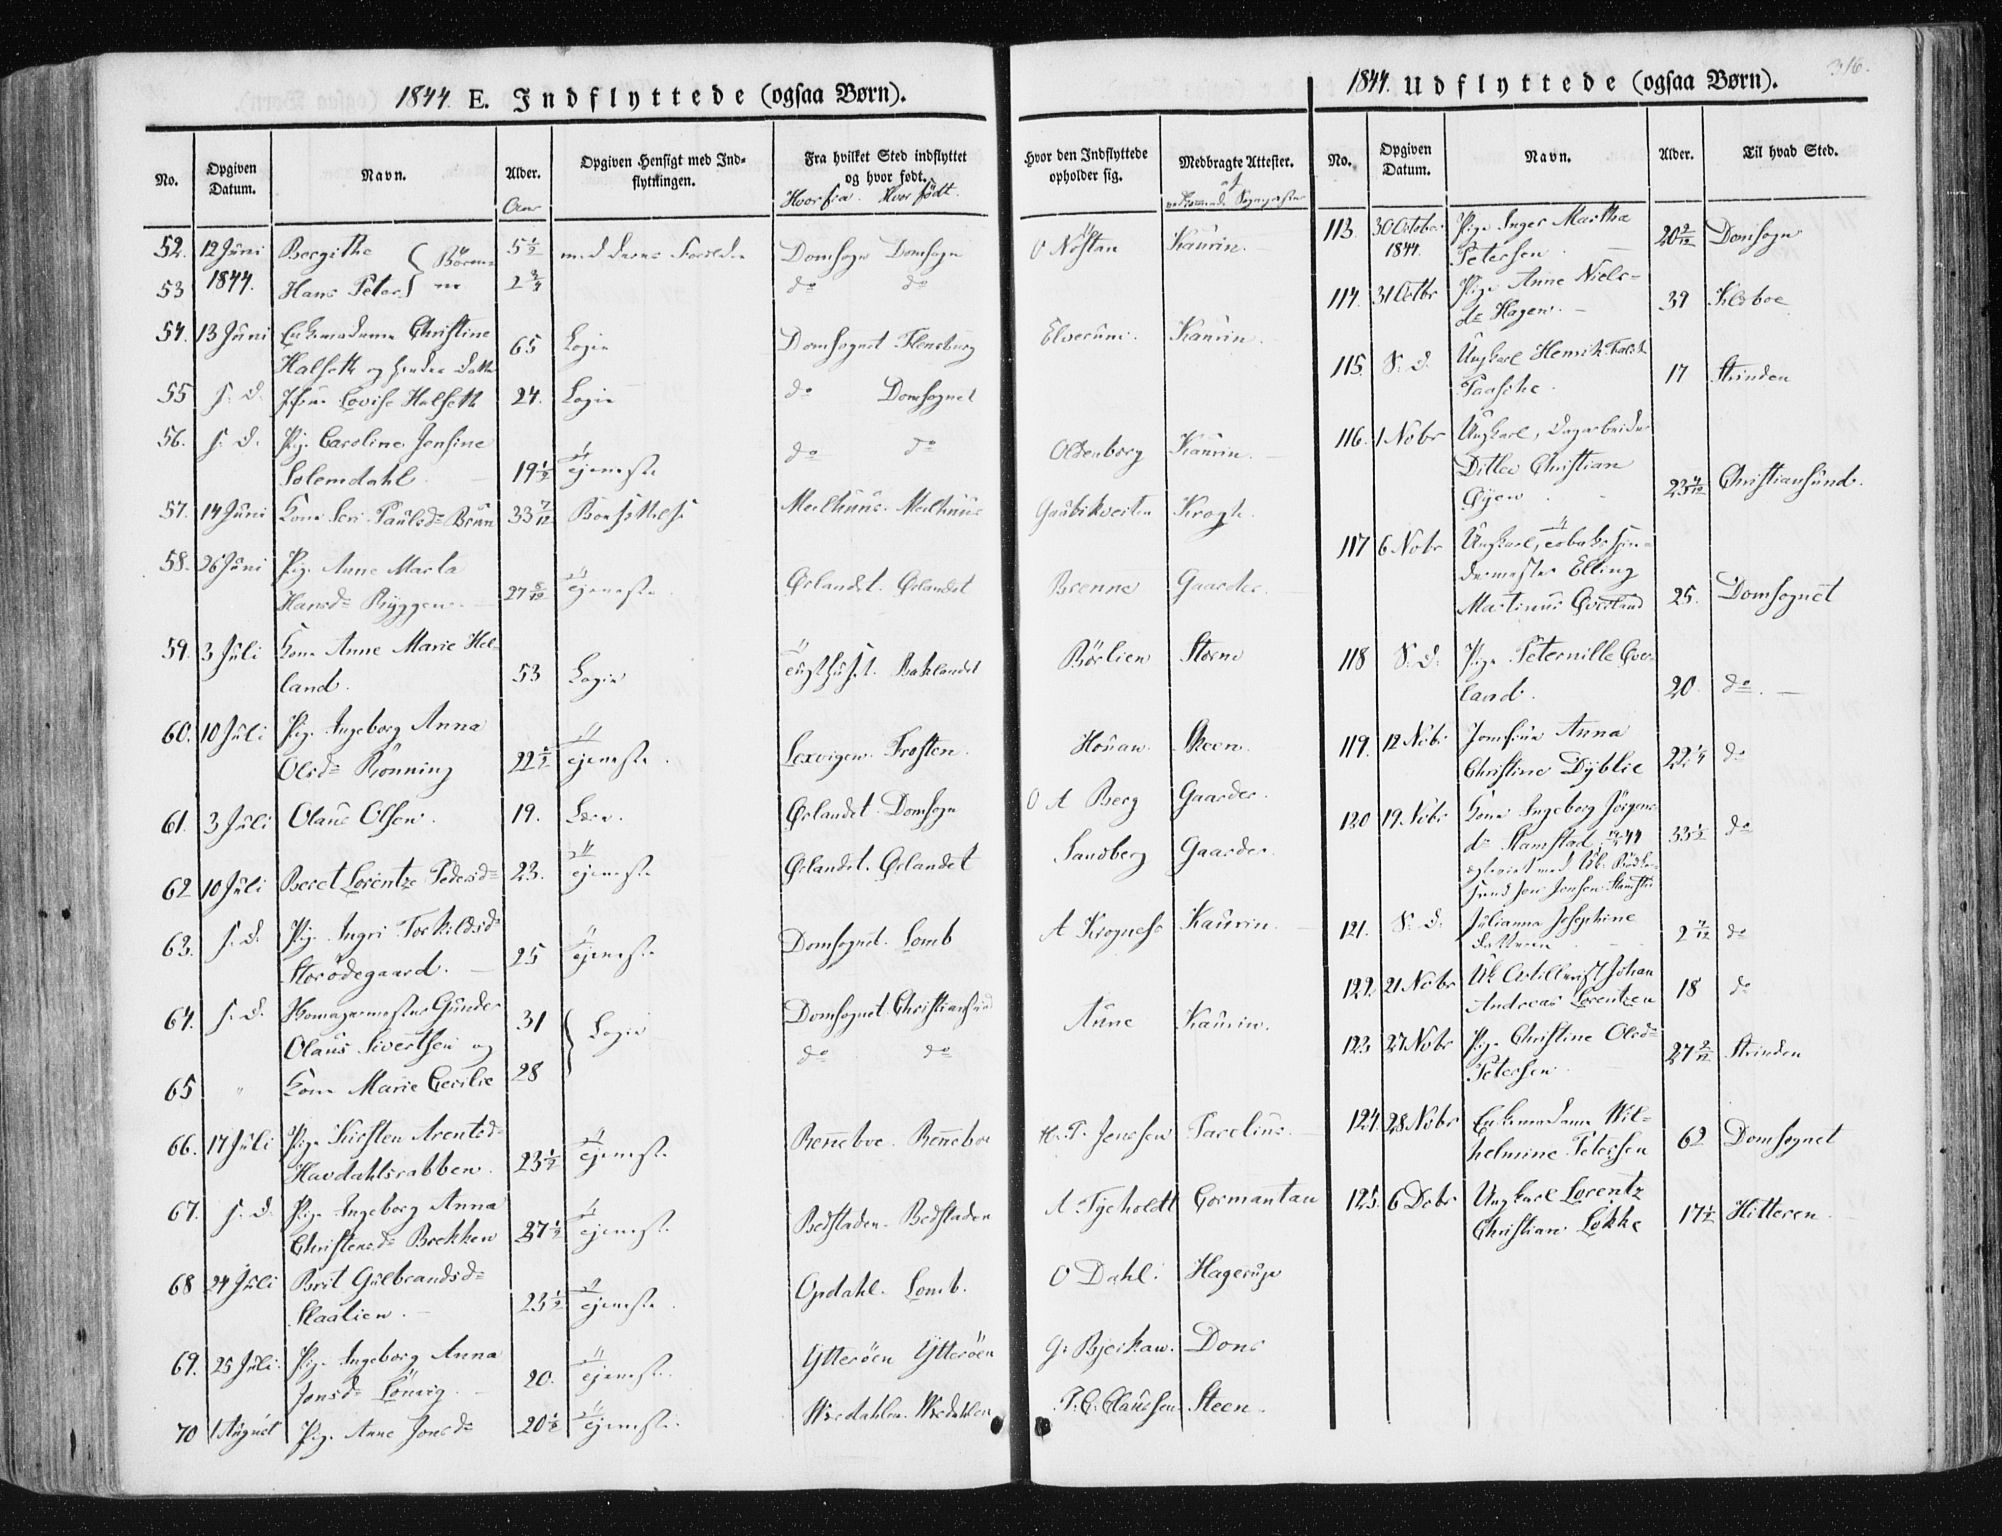 316.
1844. E. Indflyttede (ogsaa Børn).
No. Opgiven Datum. Navn. Alder. Opgiven Hensigt med Indflytningen. Fra hvilket Sted indflyttet og hvor født. Hvor den Indflyttede opholder sig. Medbragte Attester.
Hvor fra. Hvor født
52. 12 Juni 1844. Bergithe Børn 5 1/2 med deres Forældre Domsogn Domsogn O Nöstan Kaurin.
53 Hans Peter 2 3/4 do do
54. 13 Juni Enkemadame Christine 65 Logie Domsognet Flensburg Elverum. Kaurin.
Halseth og hendes Datter
55 s. D. Jfru Lovise Halseth 24. Logie do Domsognet
56. s. D. Pige Caroline Jensine
Solemdahl 19 1/2 Tjeneste do do Oldenborg Kaurin.
57. 14 Juni Kone Seri Paulsdr Brun 33 7/12 Bosættelse Melhuus. Melhuus Gaubikveiten Krogh.
58. 26 Juni Pige Anne Marta
Hansdr Ryggen. 27 8/12 Tjeneste. Ørlandet. Ørlandet Brenne Gaarder.
59. 3 Juli Kone Anne Marie Hel-
land. 53 Logie Tugthuset. Baklandet Börlien Storm
60. 10 Juli Pige Ingeborg Anna
Olsdr Rönning 22 1/2 Tjeneste. Lexvigen. Frosten. Houan. Steen.
61. 3 Juli Olaus Olsen. 19. Lære. Ørlandet. Domsogn O A Berg Gaarder.
62 10 Juli Beret Lorentze Pedersdr 23. Tjeneste Ørlandet. Ørlandet Sandberg Gaarder.
63. s. D. Pige Ingri Torkildsdr
Storödegaard. 25 Tjeneste Domsognet. Lomb A Krogness Kaurin.
64. s. D. Gunder 31 Logie Domsognet Christiansund Aune Kaurin.
Olaus Sivertsen og
65 " Kone Marie Cecilie 28 do do
66. 17 Juli Pige Kirsten Arentsdr
Havdahlsrabben. 23 1/2 Tjeneste Renneboe. Renneboe H. P. Jenssen Parelius.
67. s. D. Pige Ingeborg Anna
Christensdr Brekken 27 1/2 Tjeneste Bedstaden. Bedstaden A Tyeholdt Cormantau
68 24 Juli Brit Gulbrandsdr
Slaalien. 23 1/2 Tjeneste. Opdahl. Lomb. O Dahl. Hagerup
69. 25 Juli. Pige Ingeborg Anna
Jonsdr Lönvig. 20. Tjeneste. Ytteröen Ytteröen G. Bjerkan. Dons
70 1 August Pige Anne Jonsdr 20 1/2 Tjeneste. Værdahlen. Værdahlen P. C. Claussen. Steen.
1844. Udflyttede (ogsaa Børn).
No. Opgiven Datum. Navn. Alder. Til hvad Sted.
113. 30 October 1844. Pige Inger Martha
Petersen 20 2/12 Domsogn
114. 31 Octbr Pige Anne Niels-
dr Hagen. 39 Klæboe
115. S. D. Ungkarl Henrik
Paasche. 17 Strinden
116. 1 Novbr Ungkarl, Dagarbeider
Ditlev Christian
Öyen 23 4/12 Christiansund.
117 6 Novbr Ungkarl, Tobaksspin-
dermester Elling
Martinus Overland 25. Domsognet
118 S. D. Pige Peternille Over-
land. 20. do.
119. 12 Novbr Jomfrue Anna
Christine Dyblie 22 1/4 do
120 19 Novbr Kone Ingeborg Jörgens-
dr Stamstad 33 1/2 do
Jon Jonsen
121. S. D. Julianna Josephine
Datteren 2 7/12 do
122. 21 Novbr Uk Artillerist Johan
Andreas Lorentzen 18 do
123 27 Novbr Pige Christine Olsdr
Petersen 27 2/12 Strinden
124. 28 Novbr Enkemadame Wil-
helmine Petersen 62 Domsognet
125. 6 Debr Ungkarl Lorentz
Christian Lökke 17 1/2 Hitteren.